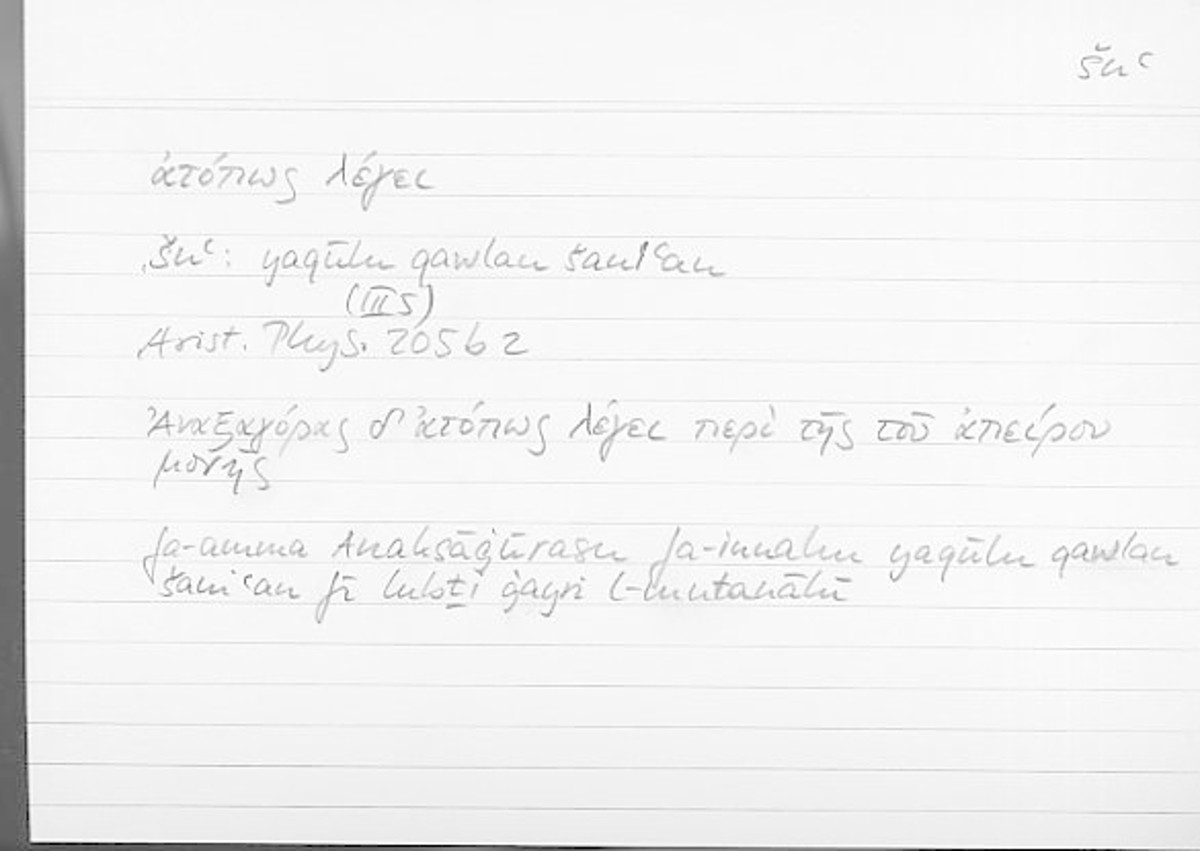 šnʿ
ἀτόπως λέγει
šnʿ: yaqūlu qawlan šaniʿan
(III5)
Arist. Phys. 205b2
Ἀναξαγόρας δ' ἀτόπως λέγει περὶ τῆς τοῦ ἀπείρου
μονῆς
fa-amma Anaksāġūrasu fa-innahu yaqūlu qawlan
šaniʿan fī lubṯi ġayri l-mutanāhī